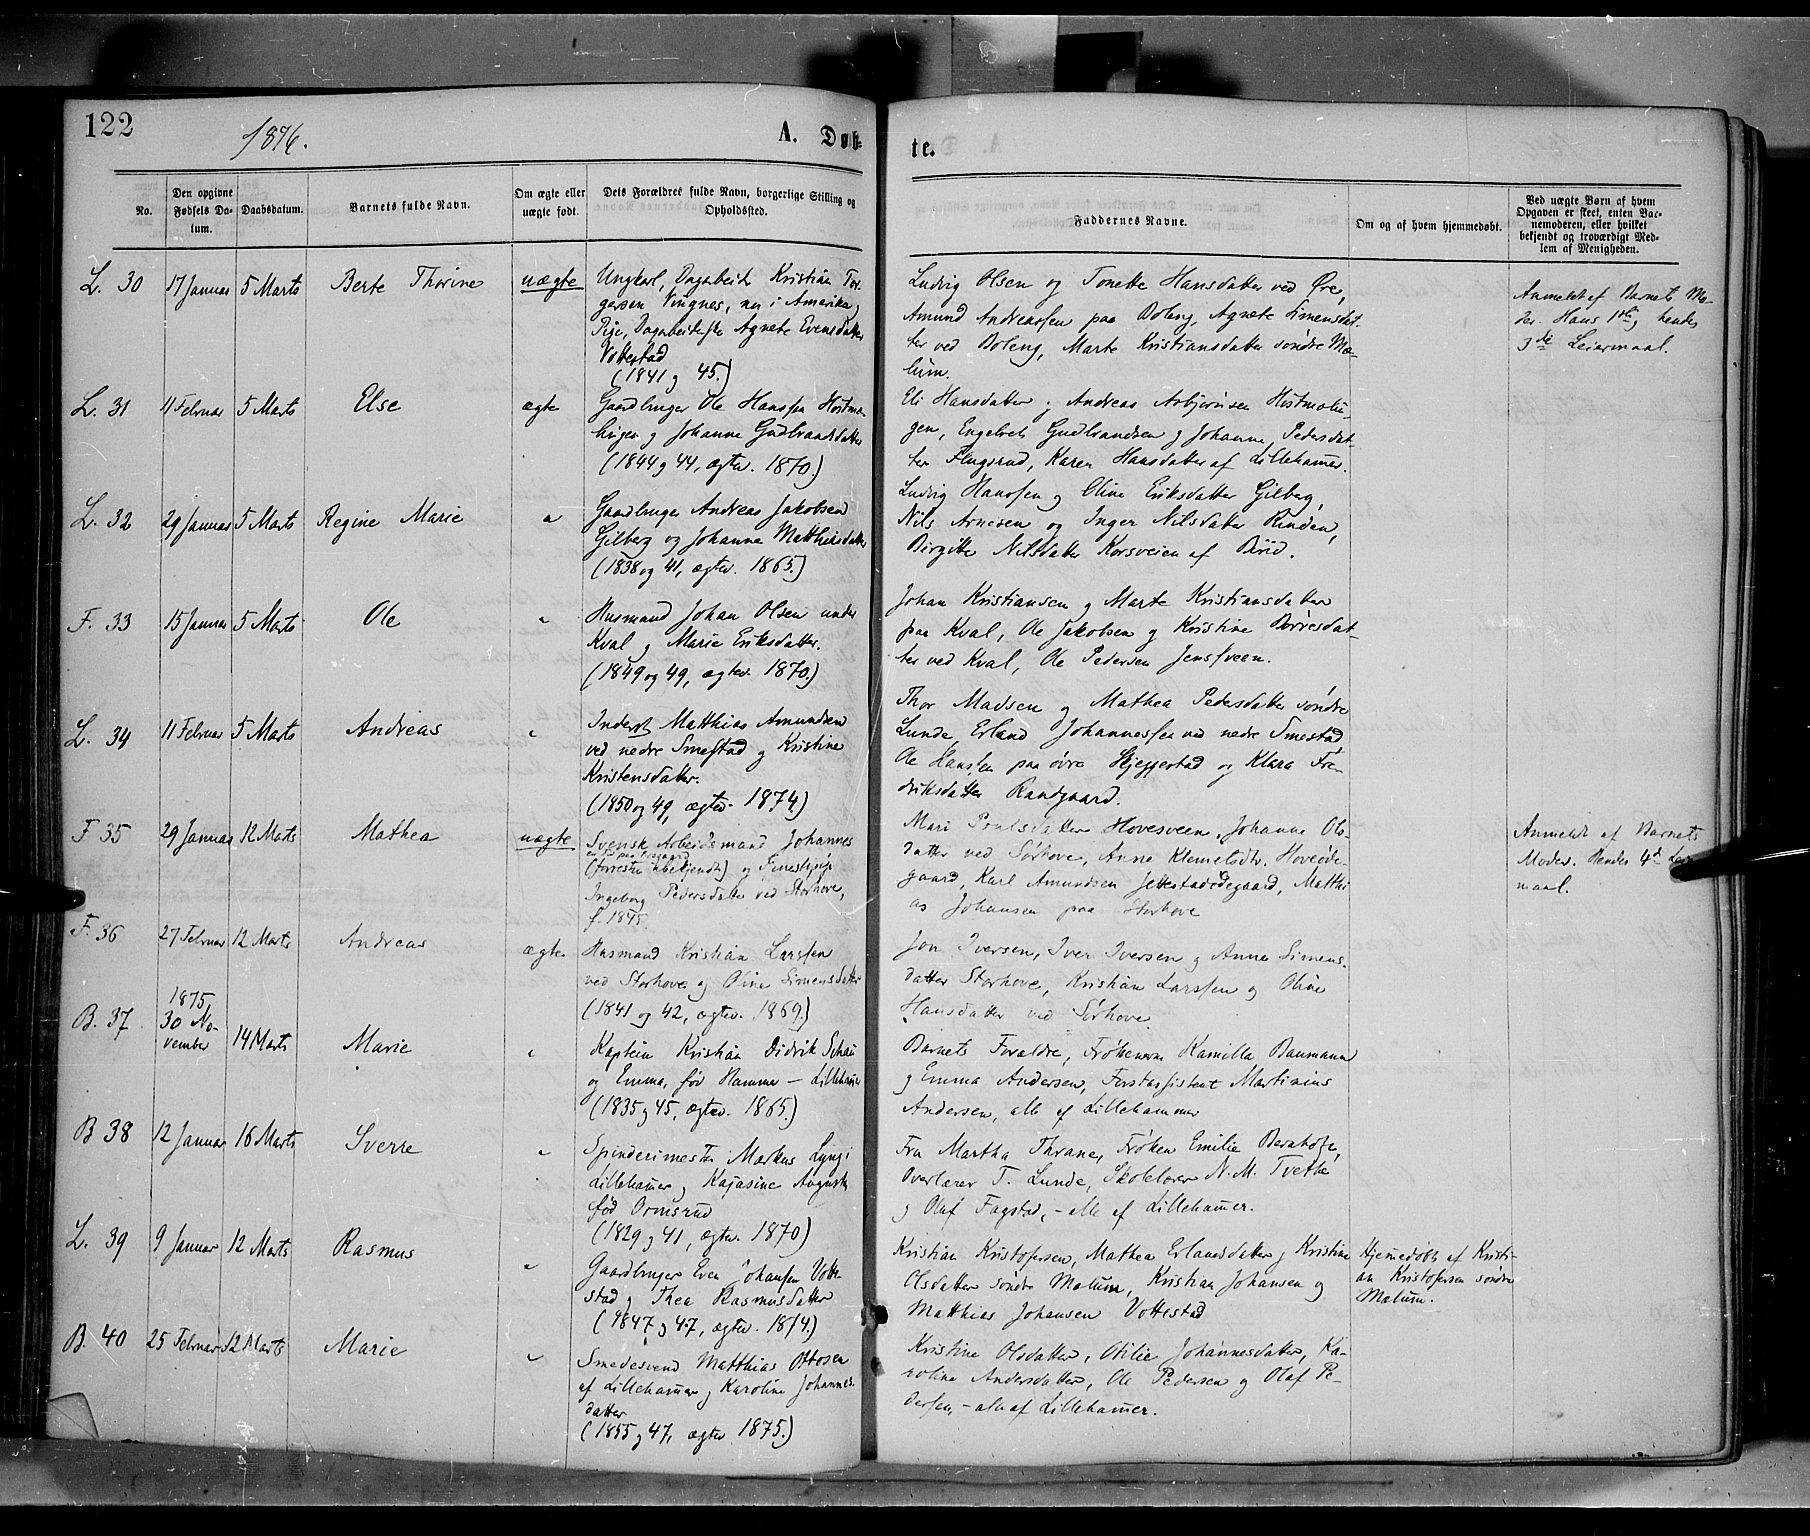 122
1876.
A. Døb-
te.
No.
Den opgivne
Fødsels Da-
tum.
Daabsdatum.
Barnets fulde Navn.
Om ægte eller
uægte født.
Dets Forældres fulde Navn, borgerlige Stilling og
Opholdssted.
Faddernes Navne.
Om og af hvem hjemmedøbt.
Ved uægte Børn af hvem
Opgaven er skeet, enten Bar-
nemoderen, eller hvilket
bekjendt og troværdigt Med-
lem af Menigheden.
L. 30
17 Januar
5 Marts
Berte Thorine
uægte
Ungkarl, Dagarbeid. Kristian Tor-
gersen Vingnes, nu i Amerika,
Pige, Dagarbeiderske Agnete Evensdatter
Vottestad
(1841 og 45.)
Ludvig Olsen og Tonette Hansdatter ved Øre,
Amund Andreassen paa Boleng, Agnete Simensdat-
ter ved Boleng, Marte Kristiansdatter søndre Mæ-
lum.
Anmeldt af Barnets Mo-
der. Hans 1ste, hendes
3de Leiermaal.
L. 31
11 Februar
5 Marts
Else
ægte
Gaardbruger Ole Hanssen Hostmæ-
lingen og Johanne Gudbrandsdatter
(1844 og 44, ægtev. 1870.)
Eli Hansdatter og Andreas Asbjørnsen Hostmælin-
gen, Engebret Gudbrandsen og Johanne Pedersdat-
ter Flugsrud, Karen Hansdatter af Lillehamer.
L. 32
29 Januar
5 Marts
Regine Marie
"
Gaardbruger Andreas Jakobsen
Gilberg og Johanne Matthisdatter
(1838 og 41, ægtev. 1865.)
Ludvig Hanssen og Oline Eriksdatter Gilberg,
Nils Arnesen og Inger Nilsdatter Rinden,
Birgitte Nilsdatter Korsveien af Birid.
F. 33
15 Januar
5 Marts
Ole
"
Husmand Johan Olsen under
Kval og Marie Eriksdatter.
(1849 og 49, ægtev. 1870.)
Johan Kristiansen og Marte Kristiansdatter
paa Kval, Ole Jakobsen og Kristine Børresdat-
ter ved Kval, Ole Pedersen Jensveen.
L. 34
11 Februar
5 Marts
Andreas
"
Inderst Matthias Amundsen
ved nedre Smestad og Kristine
Kristensdatter.
(1850 og 49, ægtev. 1874)
Thor Madsen og Mathea Pedersdatter søndre
Lunde, Erland Johannessen ved nedre Smestad
Ole Hanssen paa øvre Skjeggestad og Klara Fre-
driksdatter Randgaard.
F 35
29 Januar
12 Marts
Mathea
uægte
Svensk Arbeidsmand Johannes
(forresten ubekjendt) og Tjenestepige
Ingeborg Pedersdatter ved Storhove,
f. 1848.
Mari Poulsdatter Hovesveen, Johanne Ols-
datter ved Sørhove, Anne Klemetsdtr. Hoveøde-
gaard, Karl Amundsen Jettestadødegaard, Matthi-
as Johansen paa Storhove
Anmeldt af Barnets
Moder. Hendes 4de Leier-
maal.
F. 36
27 Februar
12 Marts
Andreas
ægte
Husmand Kristian Larssen
ved Storhove og Oline Simensdatter
(1841 og 42, ægtev. 1869.)
Jon Iversen, Iver Iversen og Anne Simens-
datter Storhove, Kristian Larssen og Oline
Hansdatter ved Sørhove.
B. 37
1875,
30 No-
vember
14 Marts
Marie
"
Kaptein Kristian Didrik Schau
og Emma, før Hammer – Lillehamer
(1835 og 45, ægtev. 1865.)
Barnets Forældre, Frøknerne Kamilla Baumann
og Emma Andersen, Forstassistent Martinius
Andersen, alle af Lillehammer
B 38
12 Januar
16 Marts
Sverre
"
Spinderimester Markus Lyng i
Lillehamer og Kajasine Augusta
fød Ormsrud
(1829 og 41, ægtev. 1870)
Fru Martha Thrane, Frøken Emilie Bernhoft,
Overlærer T. Lunde, Skolelærer N. M. Tvethe
og Olaf Fagstad, – alle af Lillehamer.
L. 39
9 Januar
12 Marts
Rasmus
"
Gaardbruger Even Johansen Votte-
stad og Thea Rasmusdatter
(1847 og 47, ægtev. 1874.)
Kristian Kristofersen, Mathea Erlandsdatter og Kristine
Olsdatter søndre Mælum, Kristian Johansen og
Matthias Johansen Vottestad
Hjemedøbt af Kristi-
an Kristofersen søndre
Mælum.
B. 40
25 Februar
12 Marts
Marie
"
Smedesvend Matthias Ottosen
af Lillehamer og Karoline Johannes-
datter
(1855 og 47, ægtev 1875.)
Kristine Olsdatter, Otilie Johannesdatter, Ka-
roline Andersdatter, Ole Pedersen og Olaf Pe-
dersen, – alle af Lillehamer.